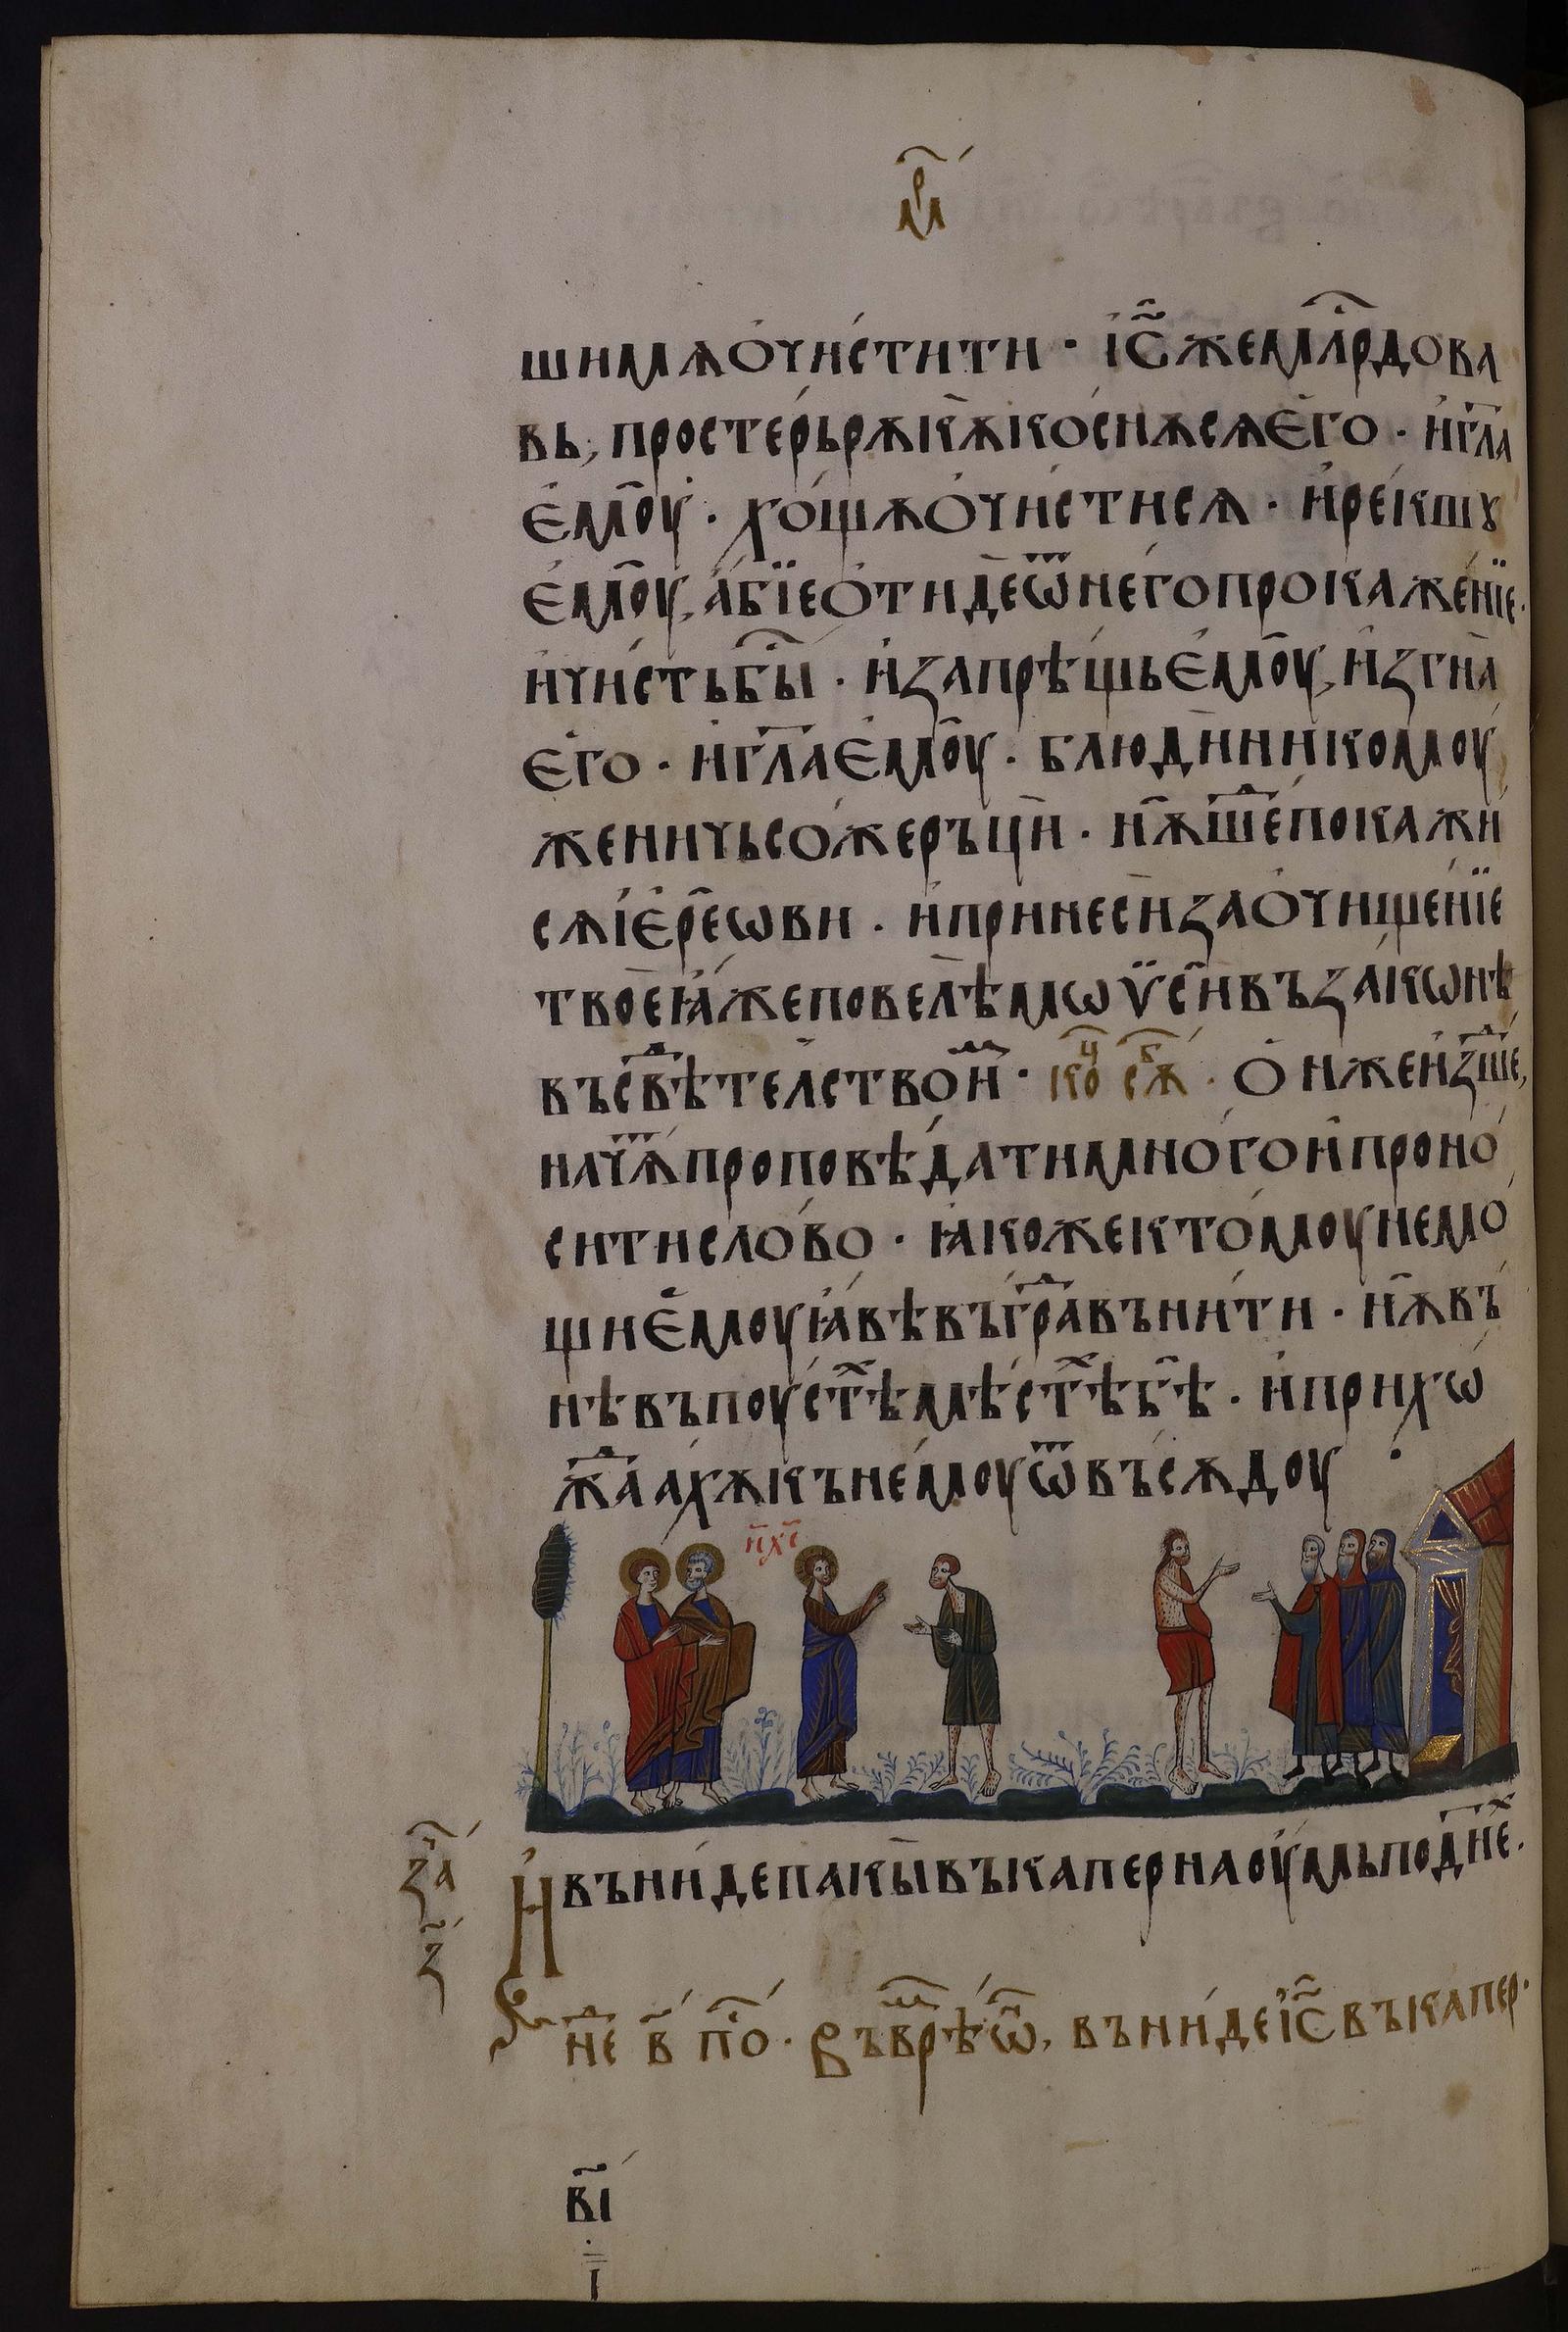 мр҃
ши мѧ очистити · і҆с҃ же млⷭ҇рдова
вь, простерь рѫкѫ коснѫсѧ е҆го · и҆ гл҃а
е҆моу · хощѫ очистисѧ · и҆ рекшꙋ
е҆моу, а҆бїе отиде ѿ него прокаженїе ·
и҆ чисть быⷭ҇ · и҆ запрѣщь е҆моу, изгна
е҆го · и҆ гл҃а е҆моу · блюди никомоу
же ничьсоже рьци · нѫ шеⷣ покажи
сѧ і҆ереѡви · и҆ принеси за очищенїе
твое ꙗ҆же повелѣ мѡѵ̈си въ законѣ
въ свѣⷣтелство и҆мⷨ · коⷰ҇ сѫⷠ · Онже и҆зшеⷣ,
начѧⷮ проповѣдати много и҆ проно
сити слово · ꙗ҆коже ктомоу не мо
щи е҆моу ꙗ҆вѣ въ граⷣ вънити · нѫ вь
нѣ въ поустѣⷯ мѣстѣⷯ бѣ · и҆ прихѡ
жⷣаахѫ къ немоу ѿвъсѫдоу :
і҃с х҃с
заⷱ҇
з҃
И҆ въниде пакы въ капернаоумь по днеⷯ ·
неⷣ в҃ поⷭ҇ · Въ врѣⷨ ѡ҆но, въниде і҆с҃ въ капер ·
в҃і
і҃